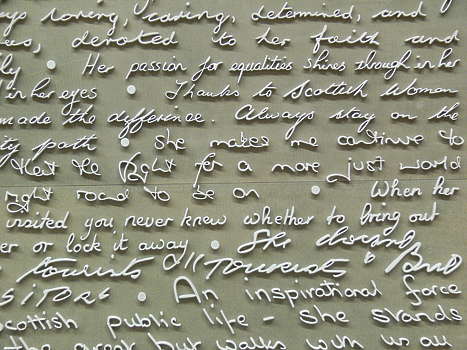 ays loving, caring, determined, and
ees, devoted to her faith and
ly • Her passion for equalities shines through in her
in her eyes • Thanks to Scottish Women
made the difference. Always stay on the
ty path • she makes me continue to
that the fight for a more just world
right road to be on • When her
visited you never knew whether to bring out
er or lock it away • She
tourists "Tourists"
SITORS • An inspirational force
cottish public life - she stands
the great but walks with us all